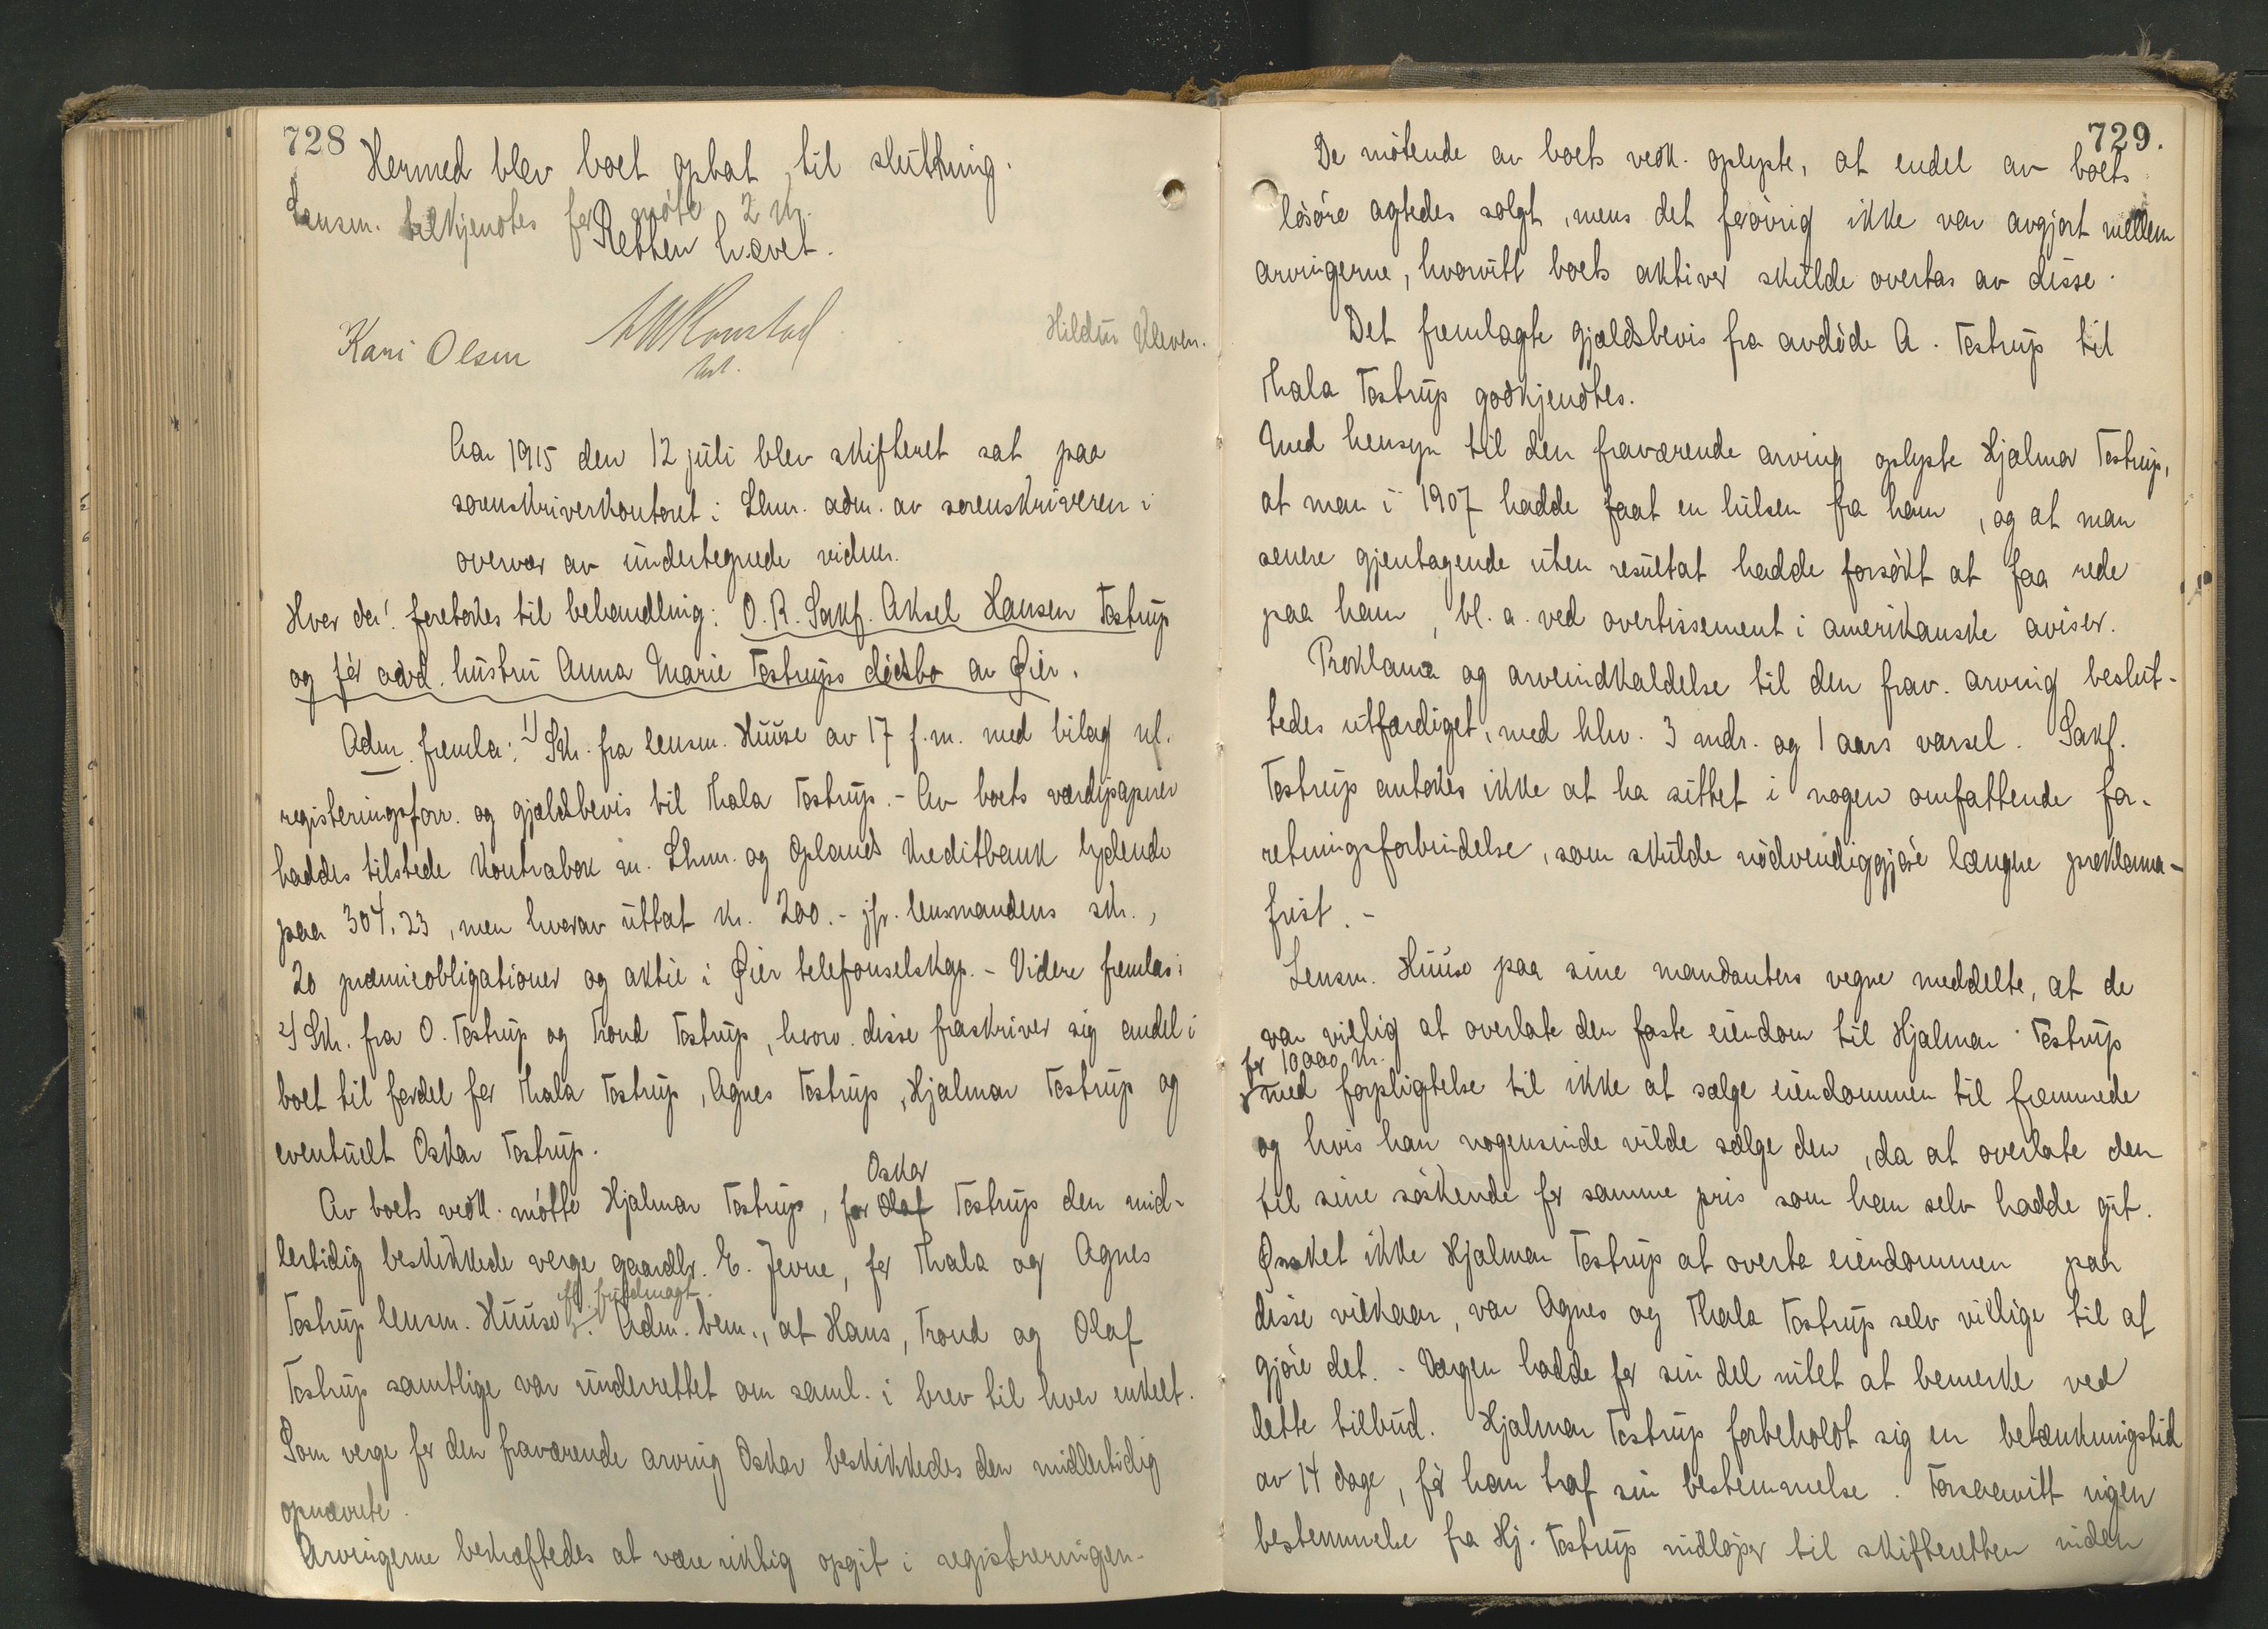 728
Hermed blev boet optat til slutning.
Lensm. tilkjendtes for møte 2 kr.
Retten hævet.
Kari Olsen
Hildur Kleven.
Aar 1915 den 12 juli blev skifteret sat paa
sorenskriverkontoret i Lhmr. adm. av sorenskriveren i
overvær av undertegnede vidner.
Hvor da! foretokes til behandling: O.R. Sakf. Aksel Hansen Tostrup
og før avd. hustru Anna Marie Tostrups dødsbo av Øier.
Adm. fremla: 1) Skr. fra lensm. Huuse av 17 f.m. med bilag nl.
registeringsforr. og gjældsbevis til Thala Tostrup. - Av boets værdipapirer
haddes tilstede kontrabok m. Lhmr. og Oplands Kreditbank lydende
paa 304,23, men hvorav uttat kr. 200.- jfr. lensmandens skr.,
20 præmieobligationer og aktie i Øier telefonselskap. - Videre fremlas:
2) Skr. fra O. Tostrup og Trond Tostrup, hvorv. disse fraskriver sig andel i
boet til fordel for Thala Tostrup, Agnes Tostrup, Hjalmar Tostrup og
eventuelt Oskar Tostrup.
Oskar
Av boets vedk. møtte Hjalmar Tostrup, for Olaf Tostrup den mid-
lertidig beskikkede verge gaardbr. E. Jevne, for Thala og Agnes
efl. fuldmagt.
Tostrup lensm. Huuse. Adm. bem., at Hans, Trond og Olaf
Tostrup samtlige var underrettet om saml. i brev til hver enkelt.
Som verge for den fraværende arving Oskar beskikkedes den midlertidig
opnævnte.
Arvingerne bekræftedes at være riktig opgit i registreringen.
729.
De møtende av boets vedk. oplyste, at endel av boets
løsøre agtedes solgt, mens det forøvrig ikke var avgjort mellem
arvingerne, hvorvitt boets aktiver skulde overtas av disse.
Det fremlagte gjældsbevis fra avdøde A. Tostrup til
Thala Tostrup godkjendtes.
Med hensyn til den fraværende arving oplyste Hjalmar Tostrup,
at man i 1907 hadde faat en hilsen fra ham, og at man
senere gjentagende uten resultat hadde forsøkt at faa rede
paa ham, bl. a. ved avertissement i amerikanske aviser.
Proklama og arveindkaldelse til den frav. arving beslut-
tedes utfærdiget, med hhv. 3 mdr. og 1 aars varsel. Sakf.
Tostrup antokes ikke at ha sittet i nogen omfattende for-
retningsforbindelse, som skulde nødvendiggjøre længre proklama-
frist. -
Lensm. Huuse paa sine mandanters vegne meddelte, at de
var villig at overlate den faste eiendom til Hjalmar Tostrup
for 10000 kr.
med forpligtelse til ikke at sælge eiendommen til fremmede
og hvis han nogensinde vilde sælge den, da at overlate den
til sine søskende for samme pris som han selv hadde git.
Ønsket ikke Hjalmar Tostrup at overta eiendommen paa
disse vilkaar, var Agnes og Thala Tostrup selv villige til at
gjøre det. - Vergen hadde for sin del intet at bemerke ved
dette tilbud. Hjalmar Tostrup forbeholdt sig en betænkningstid
av 14 dage, før han traf sin bestemmelse. Forsaavitt ingen
bestemmelse fra Hj. Tostrup indløper til skifteretten inden